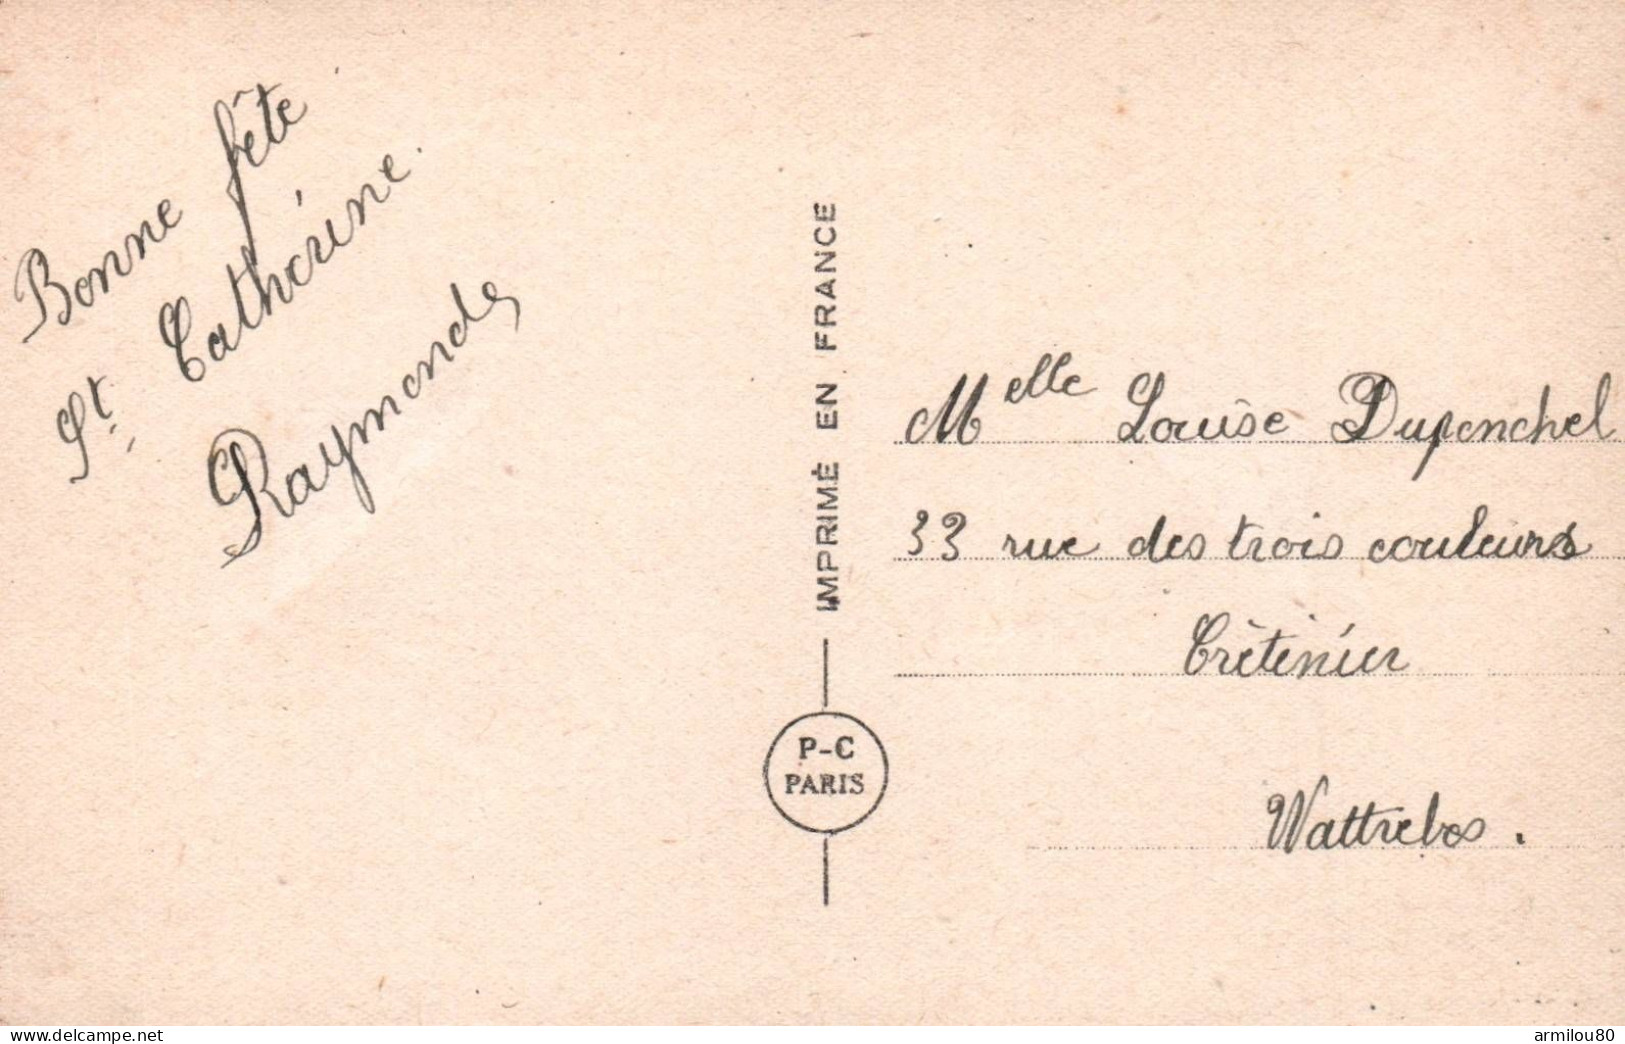 Bonne fête
St. Catherine.
Raymonde
IMPRIMÉ EN FRANCE
P-C
PARIS
Melle Louise Duponchel
33 rue des trois couleurs
Crétinier
Wattrelos.
delcampe.net
armilou80